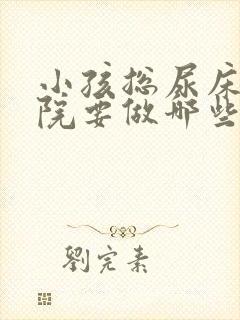 小孩总尿床
院要做哪些
劉完素